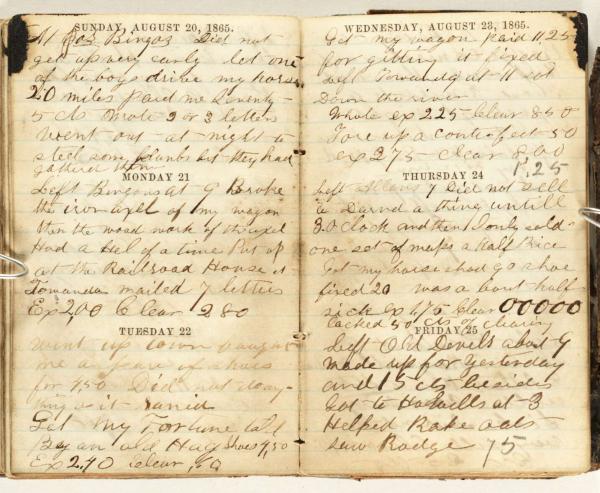 SUNDAY, AUGUST 20, 1865.
At Joe Bingos Did not
get up very early let one
of the boys drive my horse
20 miles Paid me Seventy-
5 cts Wrote 2 or 3 letters
Went out at night to
steel som plumbs but they had
gathered them
MONDAY 21
Left Bingons at 9 Broke
the iron axel of my wagon
then the wood work of the axel
Had a Hel of a time Put up
at the Railroad House at
Towanda mailed 7 letters
Ex 2,00 Clear 2 80
TUESDAY 22
Went up town bought
me a pare of shoes
for 4,50 Did not do any-
thing as it rained
Got my Fortune told
By an old Hag Shoes 4,50
Ex 2.40 Clear
WEDNESDAY, AUGUST 23, 1865.
Get my wagon Paid 11,25
for gitting it fixed
left Towanda at 11 
Down the river
Whole ex 225 Clear 850
Tore up a conterfeet 50
ex 275 clear 8,00
THURSDAY 24
Left 7 Did not sell
a Darnd a thing untill
2.0 clock and then I only sold
one set of maps a half Price
Got my horse shod 90 a hoe
fired 20 was a bout half
sick ex 1,75 Clear 00000
lacked 50 cts of clearing
FRIDAY 25
Left Old Devels about 9
made up for yesterday
and 15 cts besides
Got to at 3
Helped Rake oats
saw Rodge 75